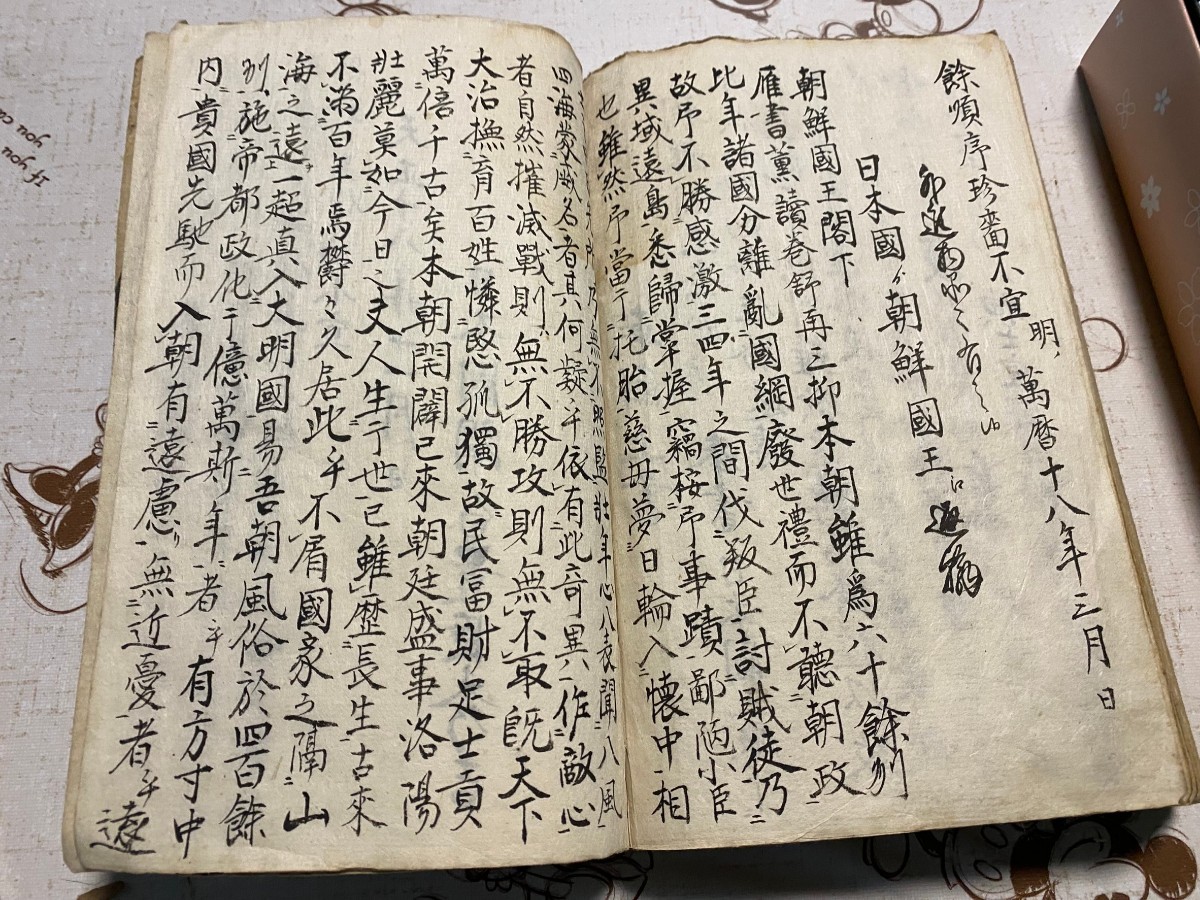 餘順序珍嗇不宣
明、萬暦十八年三月日
日本國ゟ朝鮮國王江返翰
朝鮮國王閣下
雁書薫讀巻舒再三抑本朝雖爲六十餘州
比年諸國分離亂國綱廢世禮而不聽朝政
故予不勝感激三四年之間伐叛臣討賊徒乃
異域遠島悉歸掌握竊桉予事蹟鄙陋小臣
也雖然予當于托胎慈母夢日輪入懷中相
乃無不照臨壯年心八表聞八風
四海蒙威名者其何疑乎依有此奇異作敵心
者自然摧滅戰則無不勝攻則無不取既天下
大治撫育百姓憐愍孤獨故民冨財足士貢
萬倍千古矣本朝開闢已來朝廷盛事洛陽
壯麗莫如今日之夫人生于世已雖歷長生古來
不滿百年焉欝々久居此乎不屑國家之隔山
海之遠一超真入大明國易吾朝風俗於四百餘
州施帝都政化于億萬斯年者乎有方寸中
内貴國先馳而入朝有遠慮無近憂者乎遠
If you ca